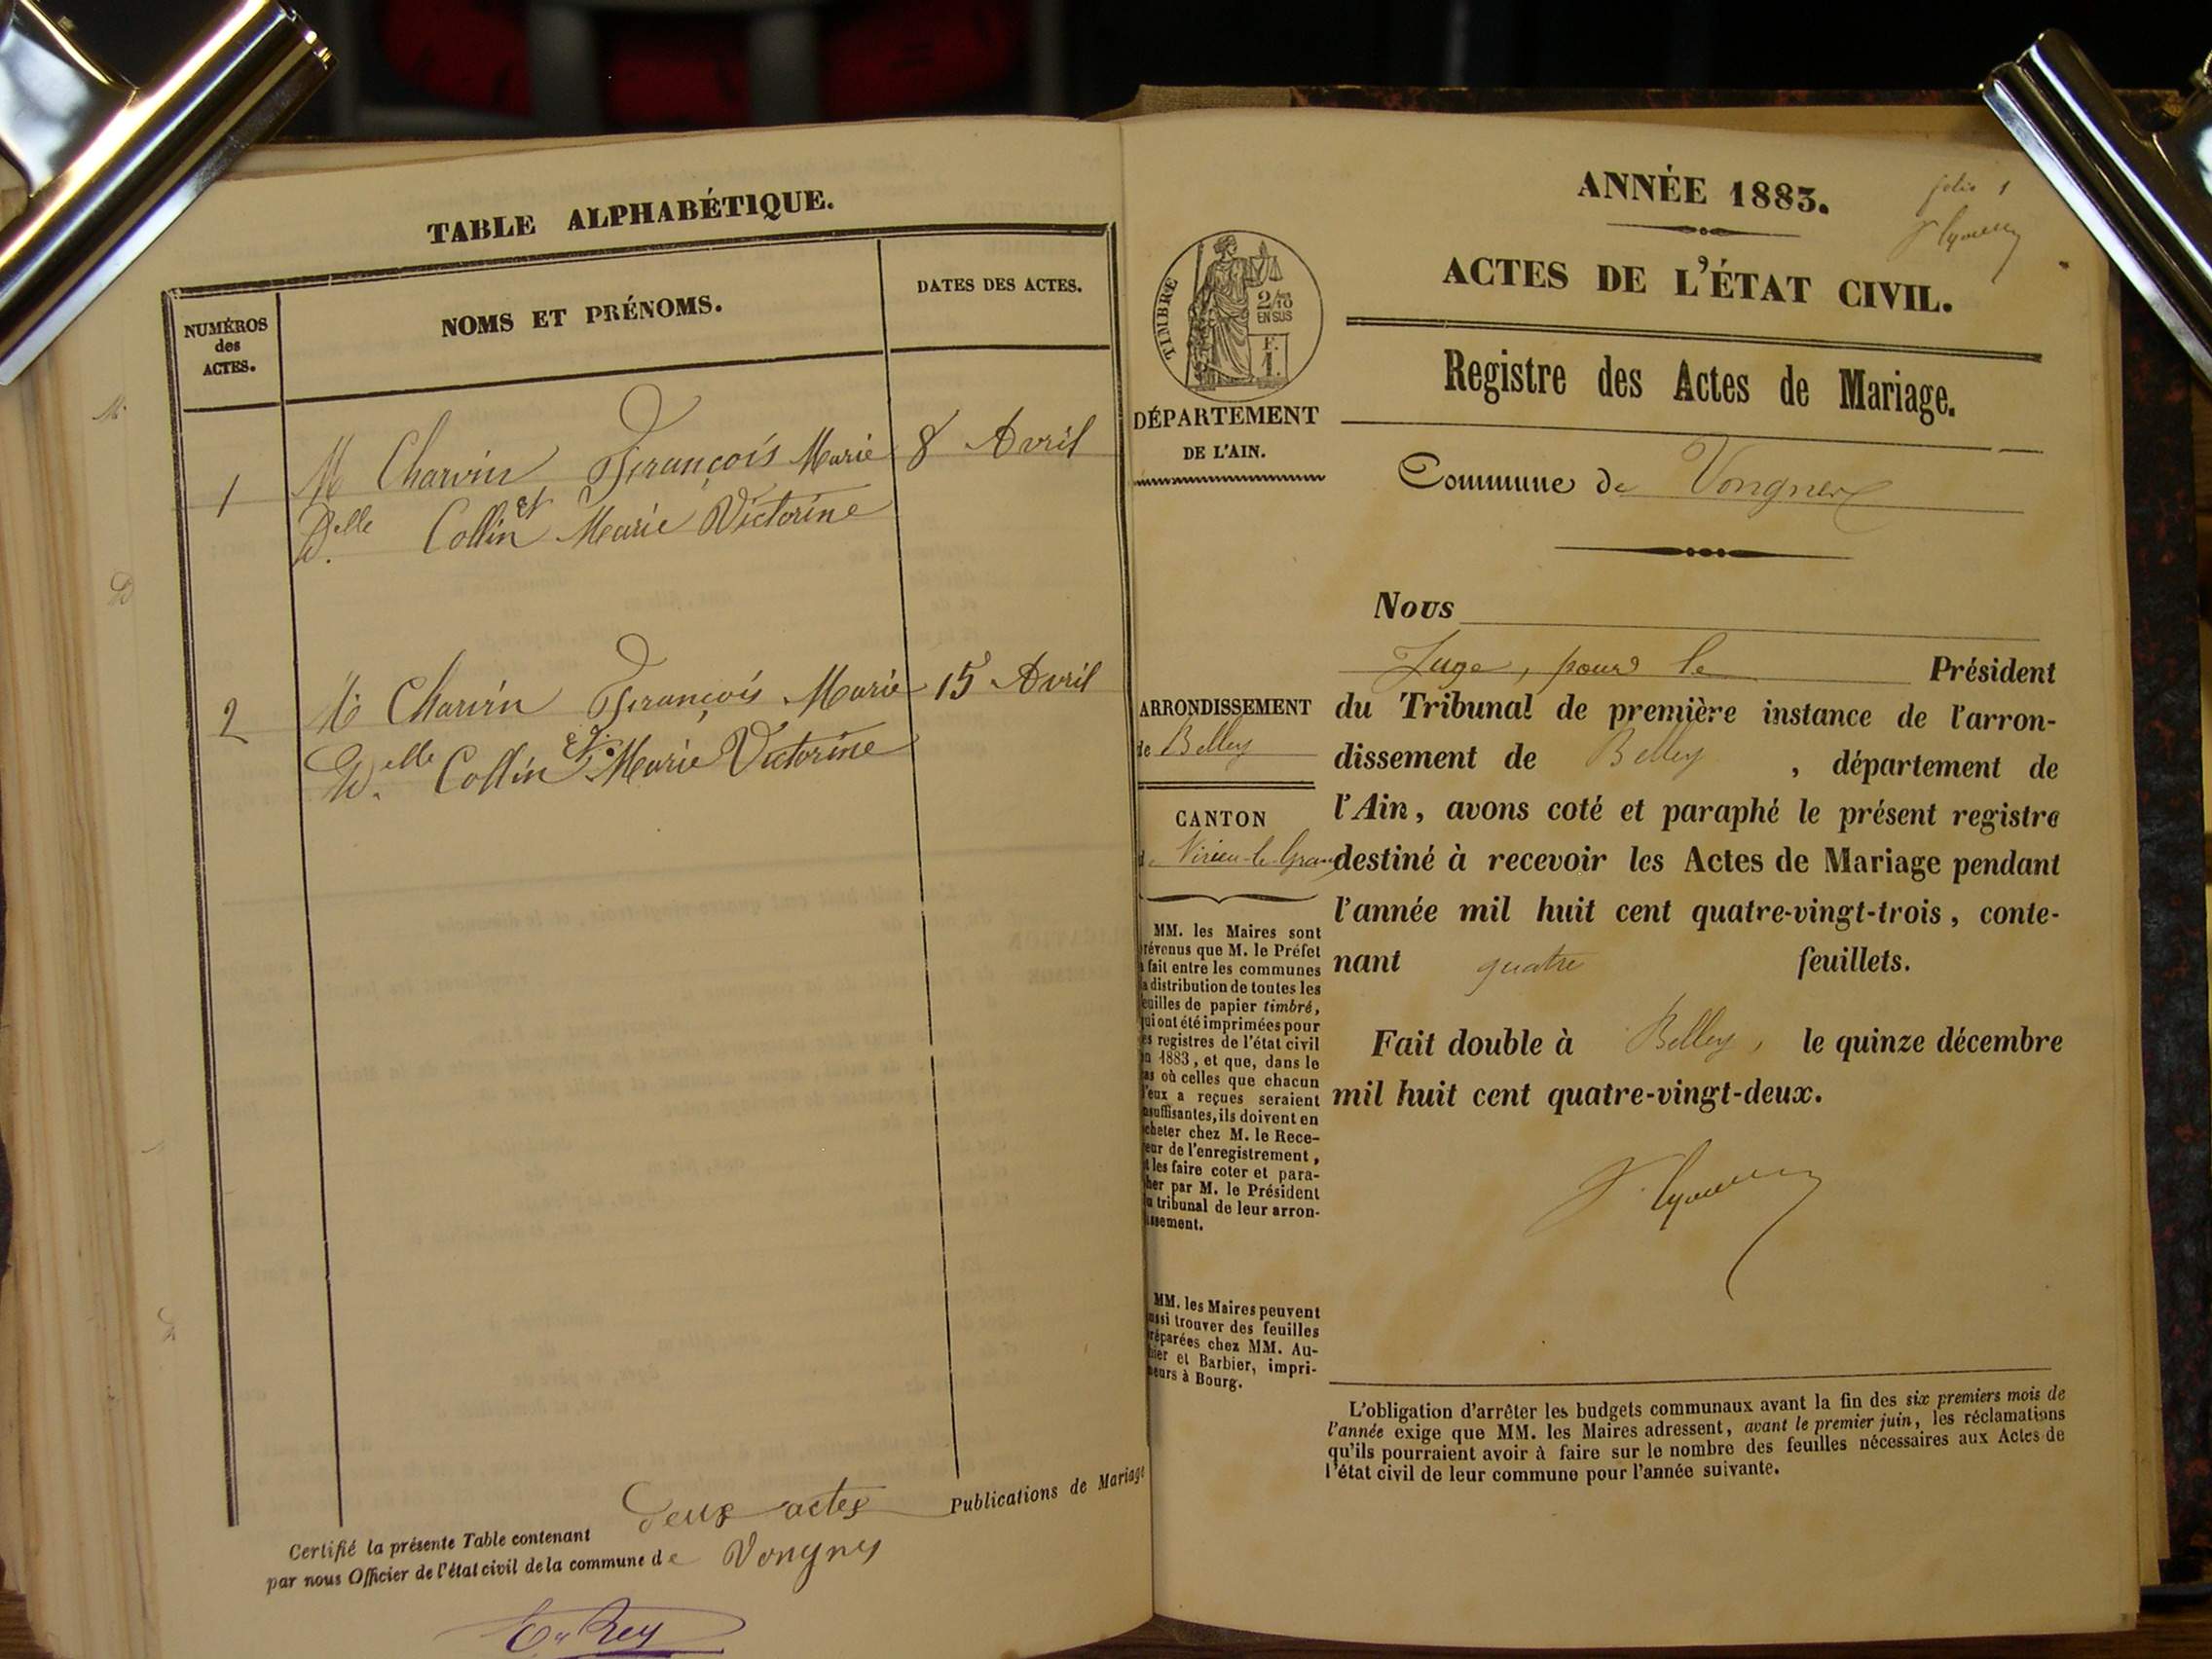 TABLE ALPHABÉTIQUE.
NUMÉROS
des
ACTES.
NOMS ET PRÉNOMS.
DATES DES ACTES.
1
M Charvin François Marie 8 Avril
et
Delle Collin Marie Victorine
2
M Charvin François Marie 15 Avril
et
Delle Collin Marie Victorine
Certifié la présente Table contenant deux actes Publications de Mariage
par nous Officier de l'état civil de la commune de Vongnes
Rey
folio 1
ANNÉE 1883.
ACTES DE L'ÉTAT CIVIL.
Registre des Actes de Mariage.
Commune de Vongnes
TIMBRE
2/10
EN SUS
F.
1.
DÉPARTEMENT
DE L'AIN.
ARRONDISSEMENT
de Belley
CANTON
de Virieu-le-Grand
MM. les Maires sont
révenus que M. le Préfet
a fait entre les communes
a distribution de toutes les
euilles de papier timbré,
qui ont été imprimées pour
es registres de l'état civil
n 1883, et que, dans le
as où celles que chacun
d'eux a reçues seraient
nsuffisantes, ils doivent en
cheter chez M. le Rece-
eur de l'enregistrement,
t les faire coter et para-
her par M. le Président
u tribunal de leur arron-
issement.
MM. les Maires peuvent
ussi trouver des feuilles
réparées chez MM. Au-
hier et Barbier, impri-
eurs à Bourg.
Nous
Juge, pour le Président
du Tribunal de première instance de l'arron-
dissement de Belley, département de
l'Ain, avons coté et paraphé le présent registre
destiné à recevoir les Actes de Mariage pendant
l'année mil huit cent quatre-vingt-trois, conte-
nant quatre feuillets.
Fait double à Belley, le quinze décembre
mil huit cent quatre-vingt-deux.
L'obligation d'arrêter les budgets communaux avant la fin des six premiers mois de
l'année exige que MM. les Maires adressent, avant le premier juin, les réclamations
qu'ils pourraient avoir à faire sur le nombre des feuilles nécessaires aux Actes de
l'état civil de leur commune pour l'année suivante.